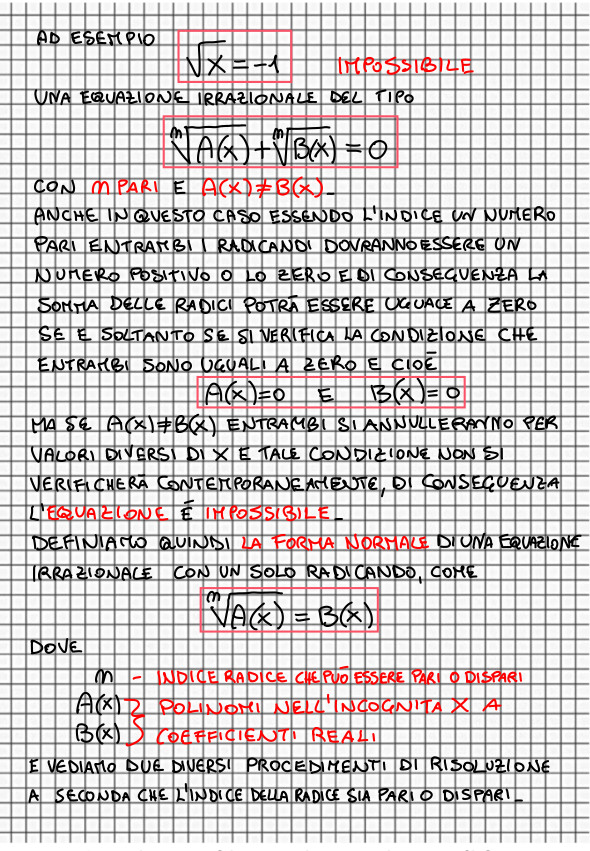 AD ESEMPIO
√x = -1 IMPOSSIBILE
UNA EQUAZIONE IRRAZIONALE DEL TIPO
ᵐ√A(x) + ᵐ√B(x) = 0
CON m PARI E A(x)≠B(x).
ANCHE IN QUESTO CASO ESSENDO L'INDICE UN NUMERO
PARI ENTRAMBI I RADICANDI DOVRANNO ESSERE UN
NUMERO POSITIVO O LO ZERO E DI CONSEGUENZA LA
SOMMA DELLE RADICI POTRÀ ESSERE UGUALE A ZERO
SE E SOLTANTO SE SI VERIFICA LA CONDIZIONE CHE
ENTRAMBI SONO UGUALI A ZERO E CIOÈ
A(x)=0 E B(x)=0
MA SE A(x)≠B(x) ENTRAMBI SI ANNULLERANNO PER
VALORI DIVERSI DI X E TALE CONDIZIONE NON SI
VERIFICHERÀ CONTEMPORANEAMENTE, DI CONSEGUENZA
L'EQUAZIONE È IMPOSSIBILE.
DEFINIAMO QUINDI LA FORMA NORMALE DI UNA EQUAZIONE
IRRAZIONALE CON UN SOLO RADICANDO, COME
ᵐ√A(x) = B(x)
DOVE
m - INDICE RADICE CHE PUÒ ESSERE PARI O DISPARI
A(x) } POLINOMI NELL'INCOGNITA X A
B(x) } COEFFICIENTI REALI
E VEDIAMO DUE DIVERSI PROCEDIMENTI DI RISOLUZIONE
A SECONDA CHE L'INDICE DELLA RADICE SIA PARI O DISPARI.